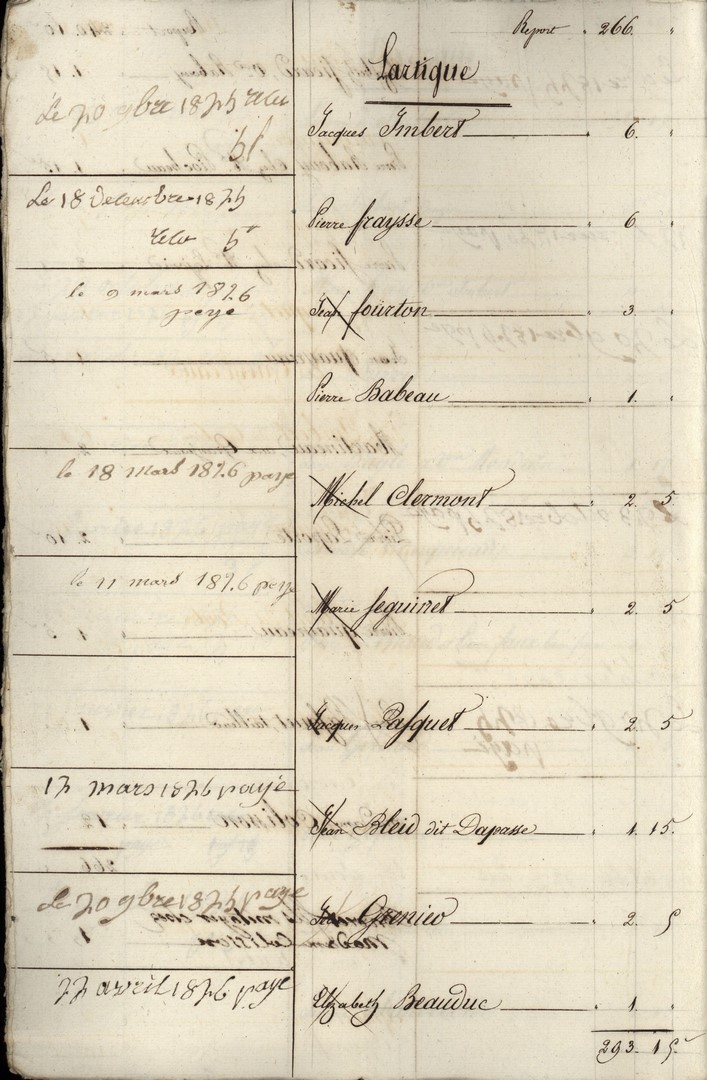 Report " 266. "
Lartigue
Le 20 9bre 1825 relu
Jacques Imbert " 6. "
Le 18 Decembre 1825
Pierre fraysse " 6 "
le 9 mars 1826
paye
Jean fourton " 3 "
Pierre Babeau " 1. "
le 18 mars 1826 paye
Michel Clermont " 2. 5
le 11 mars 1826 paye
Marie Seguinet " 2. 5
Jacques Pasquet " 2. 5
mars 1826 payé
Jean Bleid dit Dapasse " 1. 15.
Le 20 9bre 1825 paye
Jean Grenier " 2. 5
22 avril 1826 paye
Elizabeth Beauduc " 1. "
293. 15